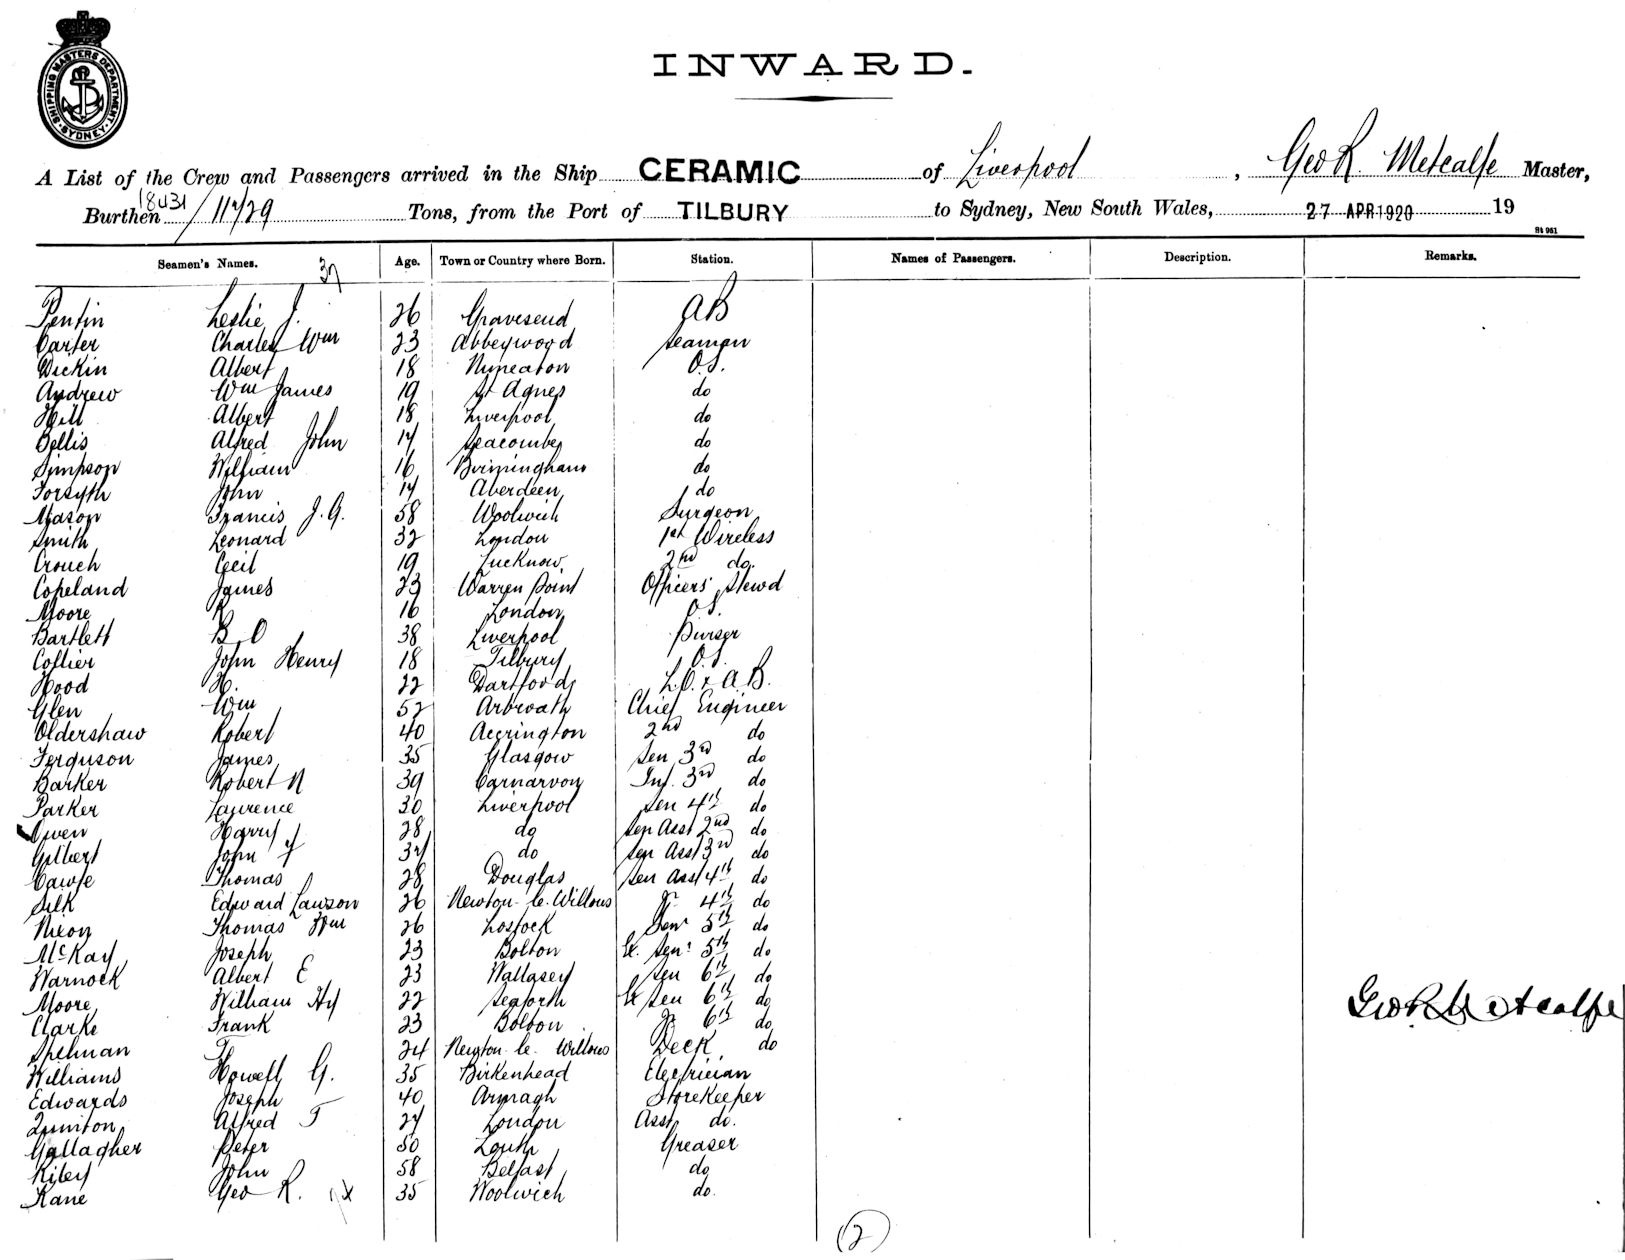 SHIPPING MASTERS DEPARTMENT. SYDNEY
INWARD.
A List of the Crew and Passengers arrived in the Ship CERAMIC of Liverpool, Geo R. Metcalfe Master,
Burthen 18481/11729 Tons, from the Port of TILBURY to Sydney, New South Wales, 27 APR 1920 19
St 961
Seamen's Names. Age. Town or Country where Born. Station. Names of Passengers. Description. Remarks.
37
Pentin Leslie J. 26 Gravesend AB
Carter Charles Wm 23 Abbeywood Seaman
Dickin Albert 18 Nuneaton O.S.
Andrew Wm James 19 St Agnes do
Hill Albert 18 Liverpool do
Bellis Alfred John 17 Seacombe do
Simpson William 16 Birmingham do
Forsyth John 17 Aberdeen do
Mason Francis J.G. 58 Woolwich Surgeon
Smith Leonard 32 London 1st Wireless
Crouch Cecil 19 Lucknow 2nd do.
Copeland James 23 Warren Point Officers' Stewd
Moore R 16 London O.S.
Bartlett B O 38 Liverpool Purser
Collier John Henry 18 Tilbury O.S.
Hood H. 22 Dartford A.B.
Glen Wm 52 Arbroath Chief Engineer
Oldershaw Robert 40 Accrington 2nd do
Ferguson James 35 Glasgow Sen 3rd do
Barker Robert N 39 Carnarvon Int. 3rd do
Parker Laurence 30 Liverpool Sen 4th do
Owen Harry 28 do Sen Asst 2nd do
Gilbert John 37 do Sen Asst 3rd do
Cawse Thomas 28 Douglas Sen Asst 4th do
Silk Edward Lawson 26 Newton-le-Willows Jr 4th do
Nixon Thomas Wm 26 Lostock Senr 5th do
McKay Joseph 23 Bolton Ex. Senr 5th do
Warnock Albert E 23 Wallasey Sen 6th do
Moore William Hy 22 Seaforth Ex Sen 6th do
Clarke Frank 23 Bolton Jr 6th do
Geo R Metcalfe
Spelman T 24 Newton-le-Willows Deck do
Williams Howell G. 35 Birkenhead Electrician
Edwards Joseph 40 Armagh Storekeeper
Quinton Alfred T 27 London Asst do.
Gallagher Peter 50 Louth Greaser
Riley John 58 Belfast do
Kane Geo R. 35 Woolwich do.
(2)